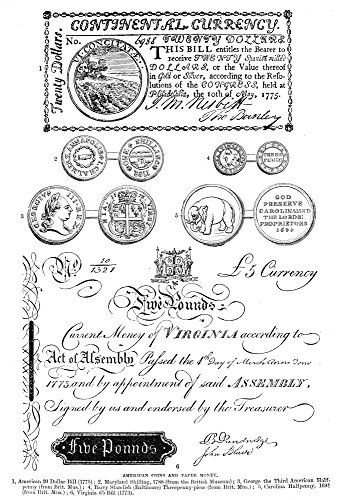 CONTINENTAL CURRENCY.
No. 6981 TWENTY DOLLARS
Twenty Dollars.
VI CONCITATAE
THIS BILL entitles the Bearer to
receive TWENTY Spanish milled
DOLLARS, or the Value thereof
in Gold or Silver, according to the Reso-
lutions of the CONGRESS, held at
Philadelphia, the 10th of May, 1775.
J. M. Nesbitt
1
2
4
THREE
PENCE
3
GEORGIVS III
5
GOD
PRESERVE
CAROLINA AND
THE LORDS
PROPRIETORS
1694
No 10
1321
£5 Currency
Five Pounds
Current Money of VIRGINIA according to
Act of Assembly Passed the 4th Day of March Anno Dom
1773 and by appointment of said ASSEMBLY,
Signed by us and endorsed by the Treasurer
Five Pounds
John Blair
6
AMERICAN COINS AND PAPER MONEY.
1, American 20 Dollar Bill (1775); 2, Maryland Shilling, 1788 (from the British Museum); 3, George the Third American Half-
penny (from Brit. Mus.); 4, Barry Standish (Baltimore) Threepenny-piece (from Brit. Mus.); 5, Carolina Halfpenny, 1694
(from Brit. Mus.); 6, Virginia £5 Bill (1773).